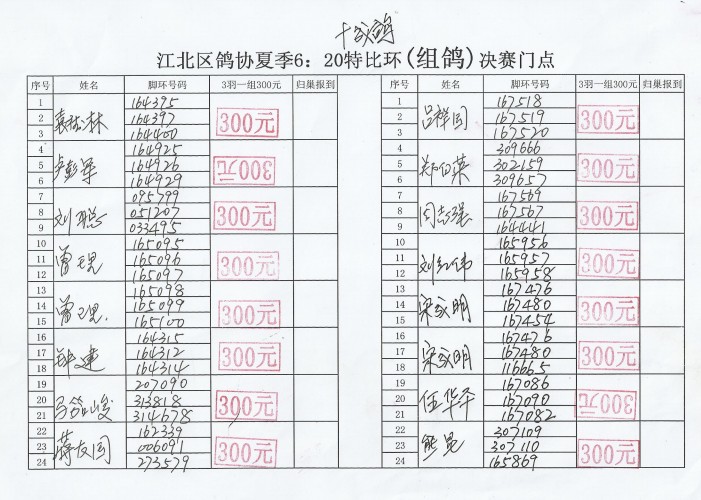 江北区鸽协夏季6：20特比环(组鸽)决赛门点
序号 姓名 脚环号码 3羽一组300元 归巢报到
1 164395
2 164397 300元
3 164400
4 164925
5 164926 300元
6 164929
7 095799
8 刘聪 051207 300元
9 033495
10 165095
11 曾理 165096 300元
12 165097
13 165098
14 曾理 165099 300元
15 165100
16 164315
17 164312 300元
18 164314
19 207090
20 313818 300元
21 314678
22 162339
23 蒋友国 006091 300元
24 273579
序号 姓名 脚环号码 3羽一组300元 归巢报到
1 167518
2 吕祥国 167519 300元
3 167520
4 309666
5 302159 300元
6 309657
7 167569
8 周志强 167567 300元
9 164441
10 165956
11 刘红伟 165957 300元
12 165958
13 167476
14 宋成明 167480 300元
15 167454
16 167476
17 宋成明 167480 300元
18 116665
19 167086
20 伍华平 167090 300元
21 167082
22 307109
23 熊昊 307110 300元
24 165869